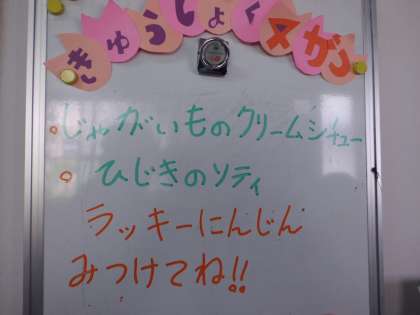 きゅうしょく4がつ
。じゃがいものクリームシチュー
。ひじきのソティ
ラッキーにんじん
みつけてね!!